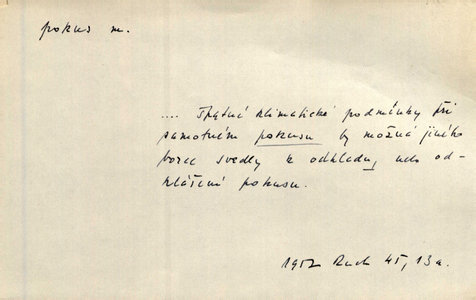 pokus m.
.... Špatné klimatické podmínky při
samotném pokusu by možná jiného
borce svedly k odkladu, nebo od-
kládání pokusu.
1952 Ruch 45, 13a.